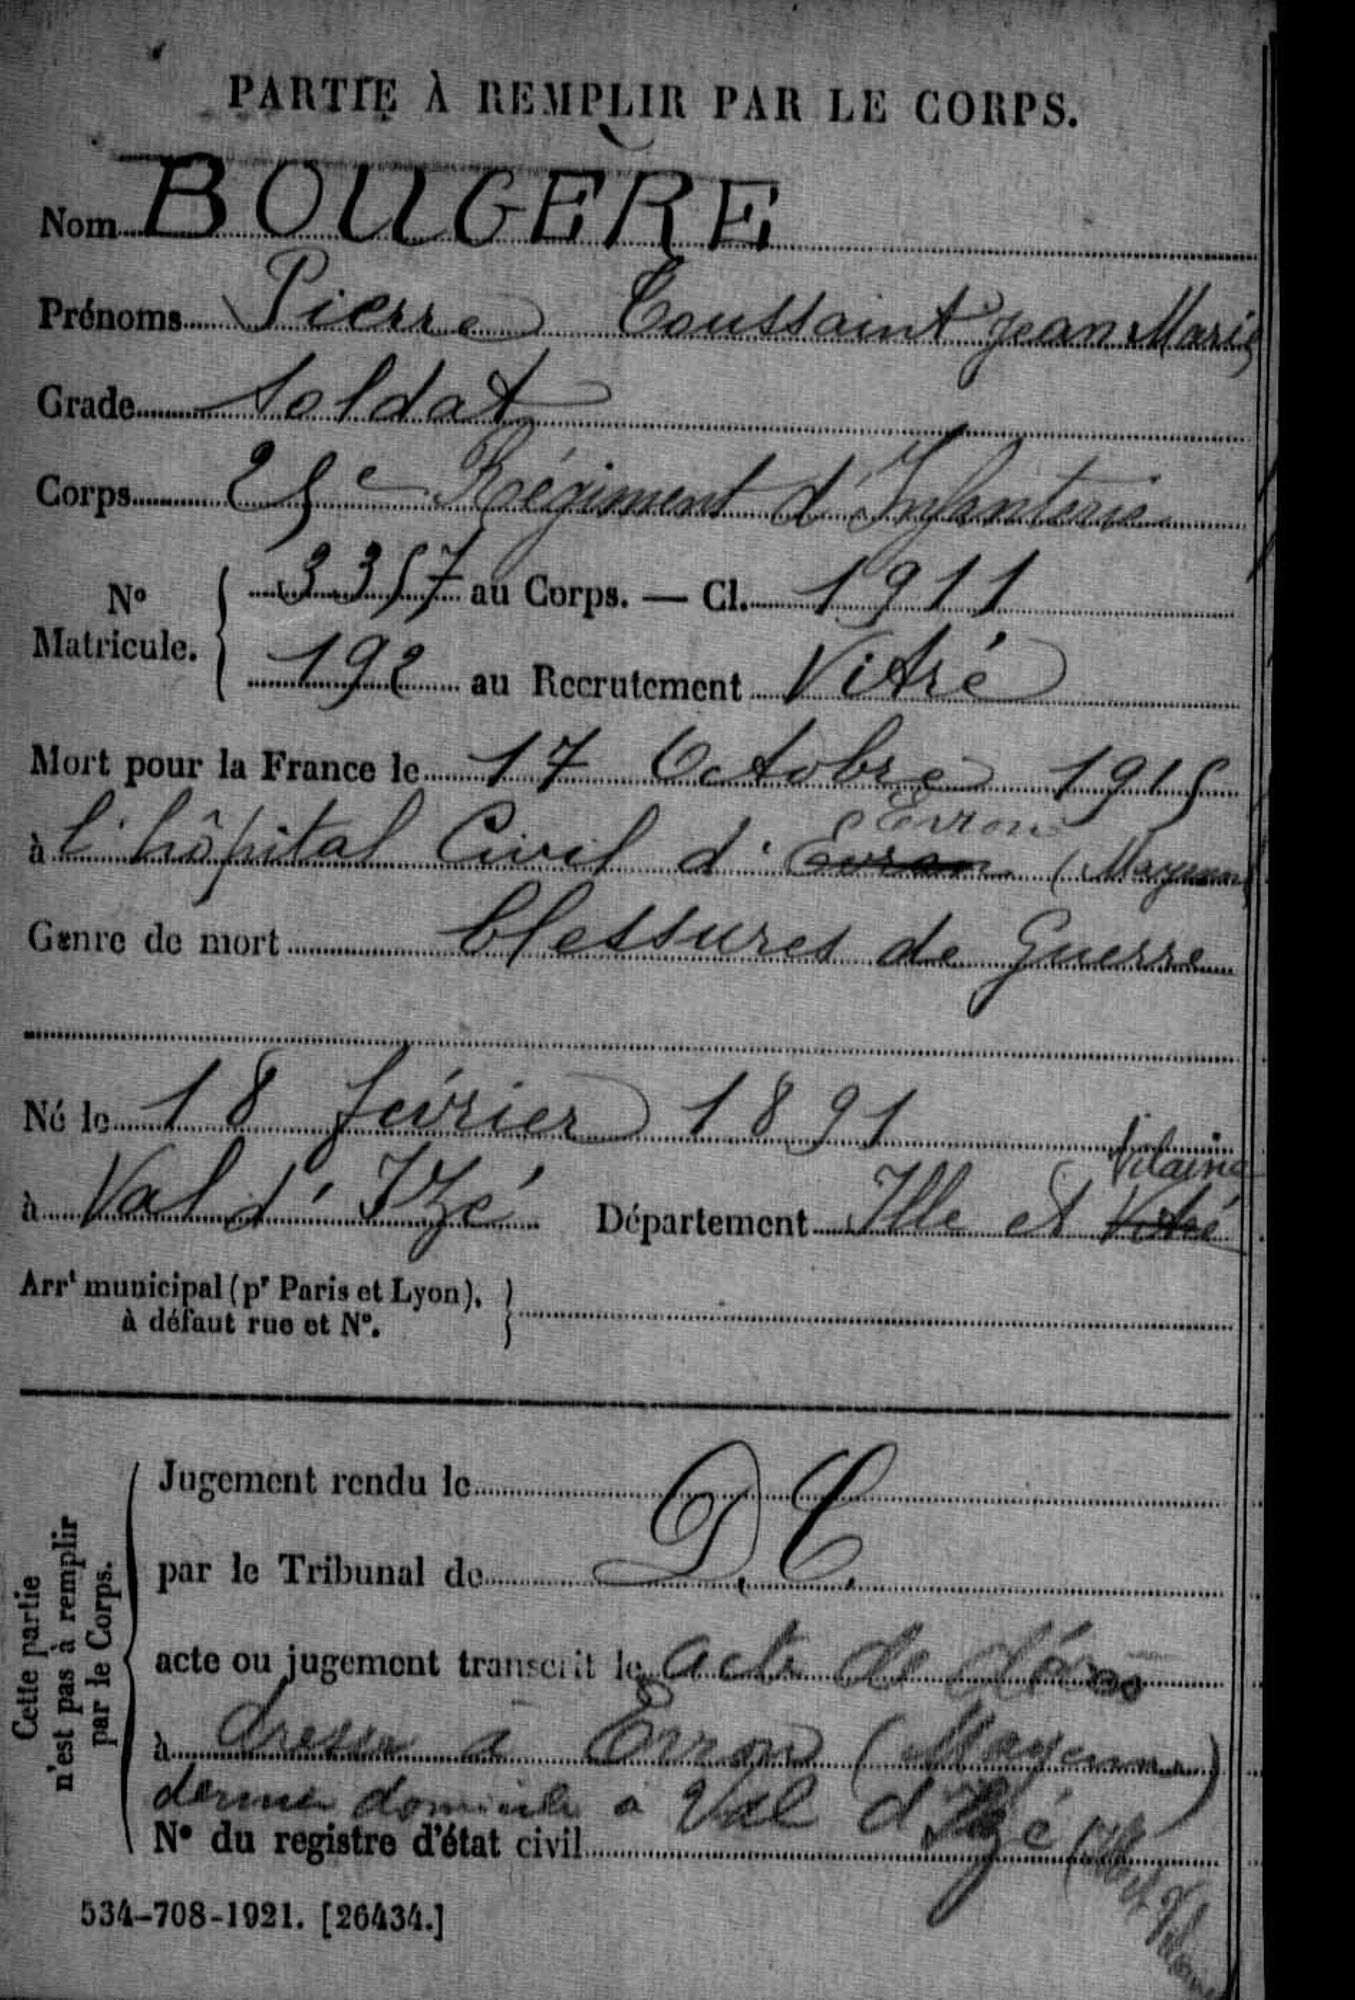 PARTIE À REMPLIR PAR LE CORPS.
Nom BOUGERE
Prénoms Pierre Toussaint Jean Marie
Grade Soldat
Corps 25e Régiment d'Infanterie
No Matricule. 3357 au Corps. — Cl. 1911
192 au Recrutement Vitré
Mort pour la France le 17 Octobre 1915
Evron
à l'hôpital Civil d'Evron (Mayenne)
Genre de mort blessures de Guerre
Né le 18 février 1891
Vilaine
à Val d'Izé Département Ille et Vitré
Arrt municipal (pr Paris et Lyon),
à défaut rue et No.
Cette partie n'est pas à remplir par le Corps.
Jugement rendu le
par le Tribunal de D.C.
acte ou jugement transcrit le acte de décès
à dressé à Evron (Mayenne)
dernier domicile à Val d'Izé (Ille et Vilaine
No du registre d'état civil
534-708-1921. [26434.]